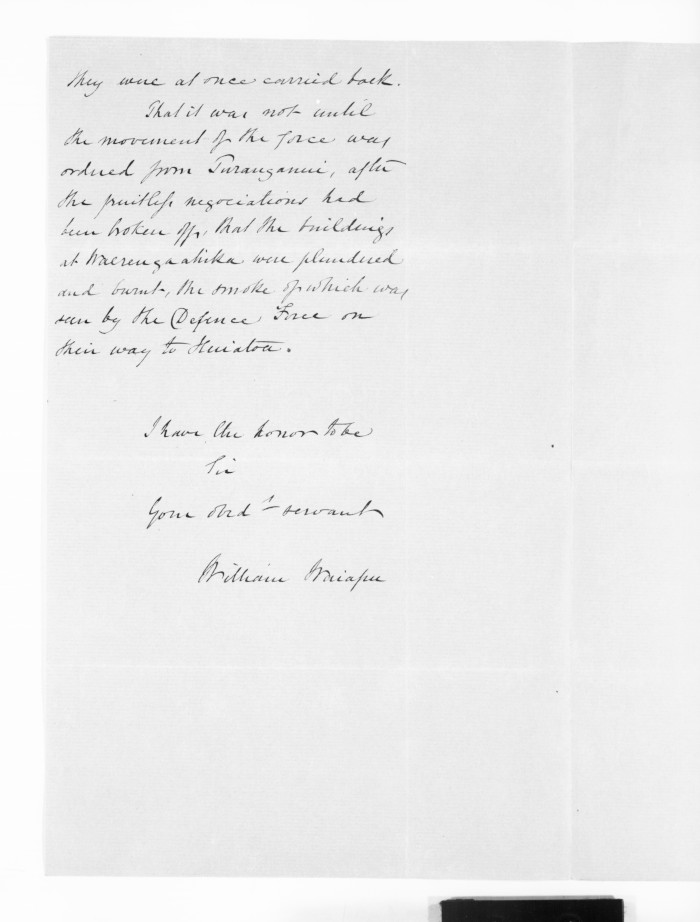 they were at once carried back.
That it was not until
the movement of the force was
ordered from Turanganui, after
the fruitless negociations had
been broken off, that the buildings
at Waerengaahika were plundered
and burnt, the smoke of which was
seen by the Defence Force on
their way to
I have the honor to be
Sir
Your obdt servant
William Waiapu